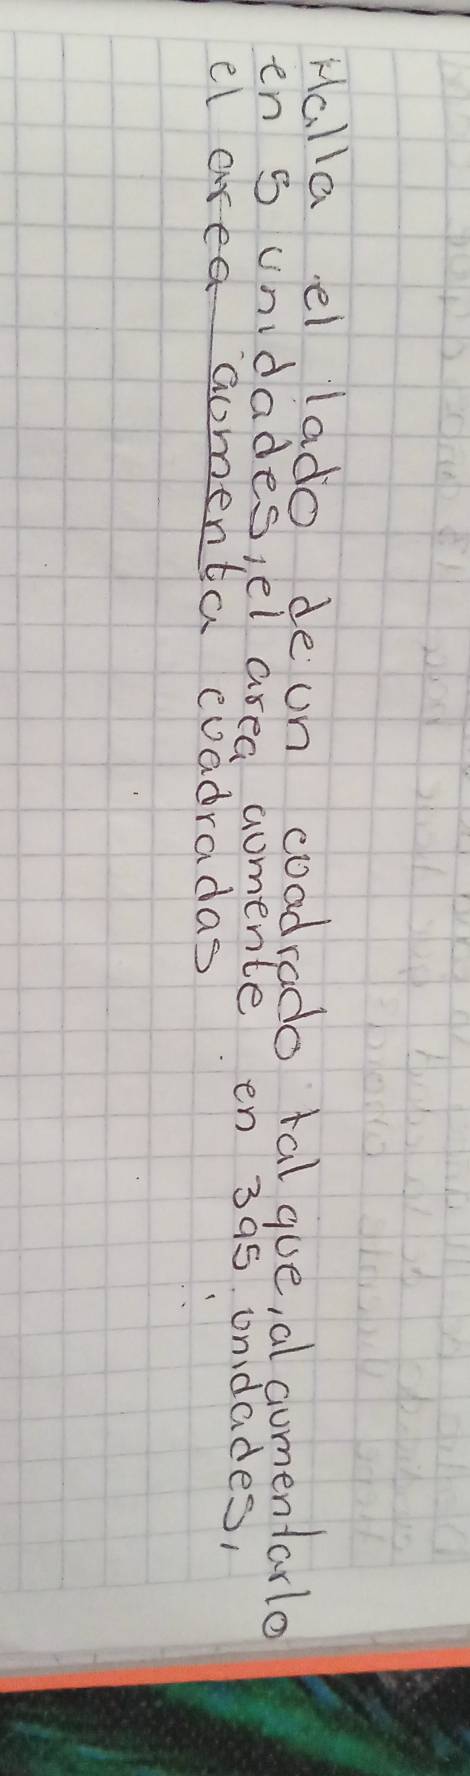 Halla el lado de un cuadrado tal que, al aumentarlo
en 5 unidades, el area aumente en 395 unidades,
el area aumenta cuadradas